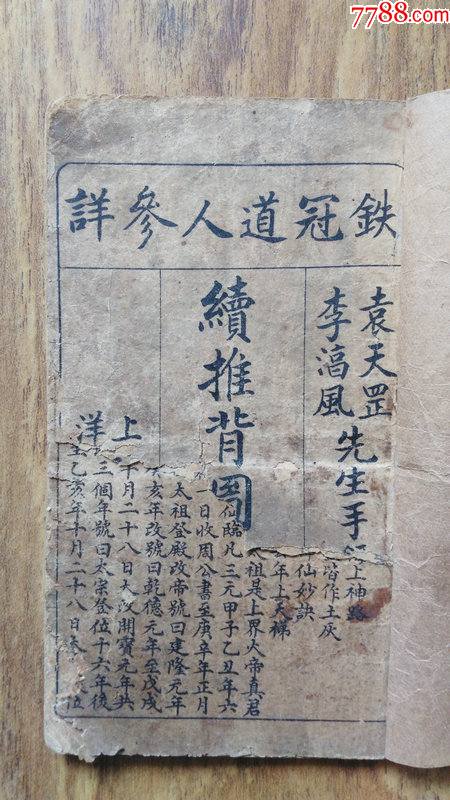 7788.com
鉄冠道人參詳
袁天罡
李湻風
先生手
續推背図
上洋
上神路
皆作土灰
仙妙訣
年上天梯
祖是上界火帝真君
仙臨凡三元甲子乙丑年六
一日收周公書至庚辛年正月
太祖登殿改帝號曰建隆元年
亥年改號曰乾德元年至戊戌
十月二十八日大改開寶元年共
三個年號曰太宗登位十六年後
乙亥年十月二十八日位